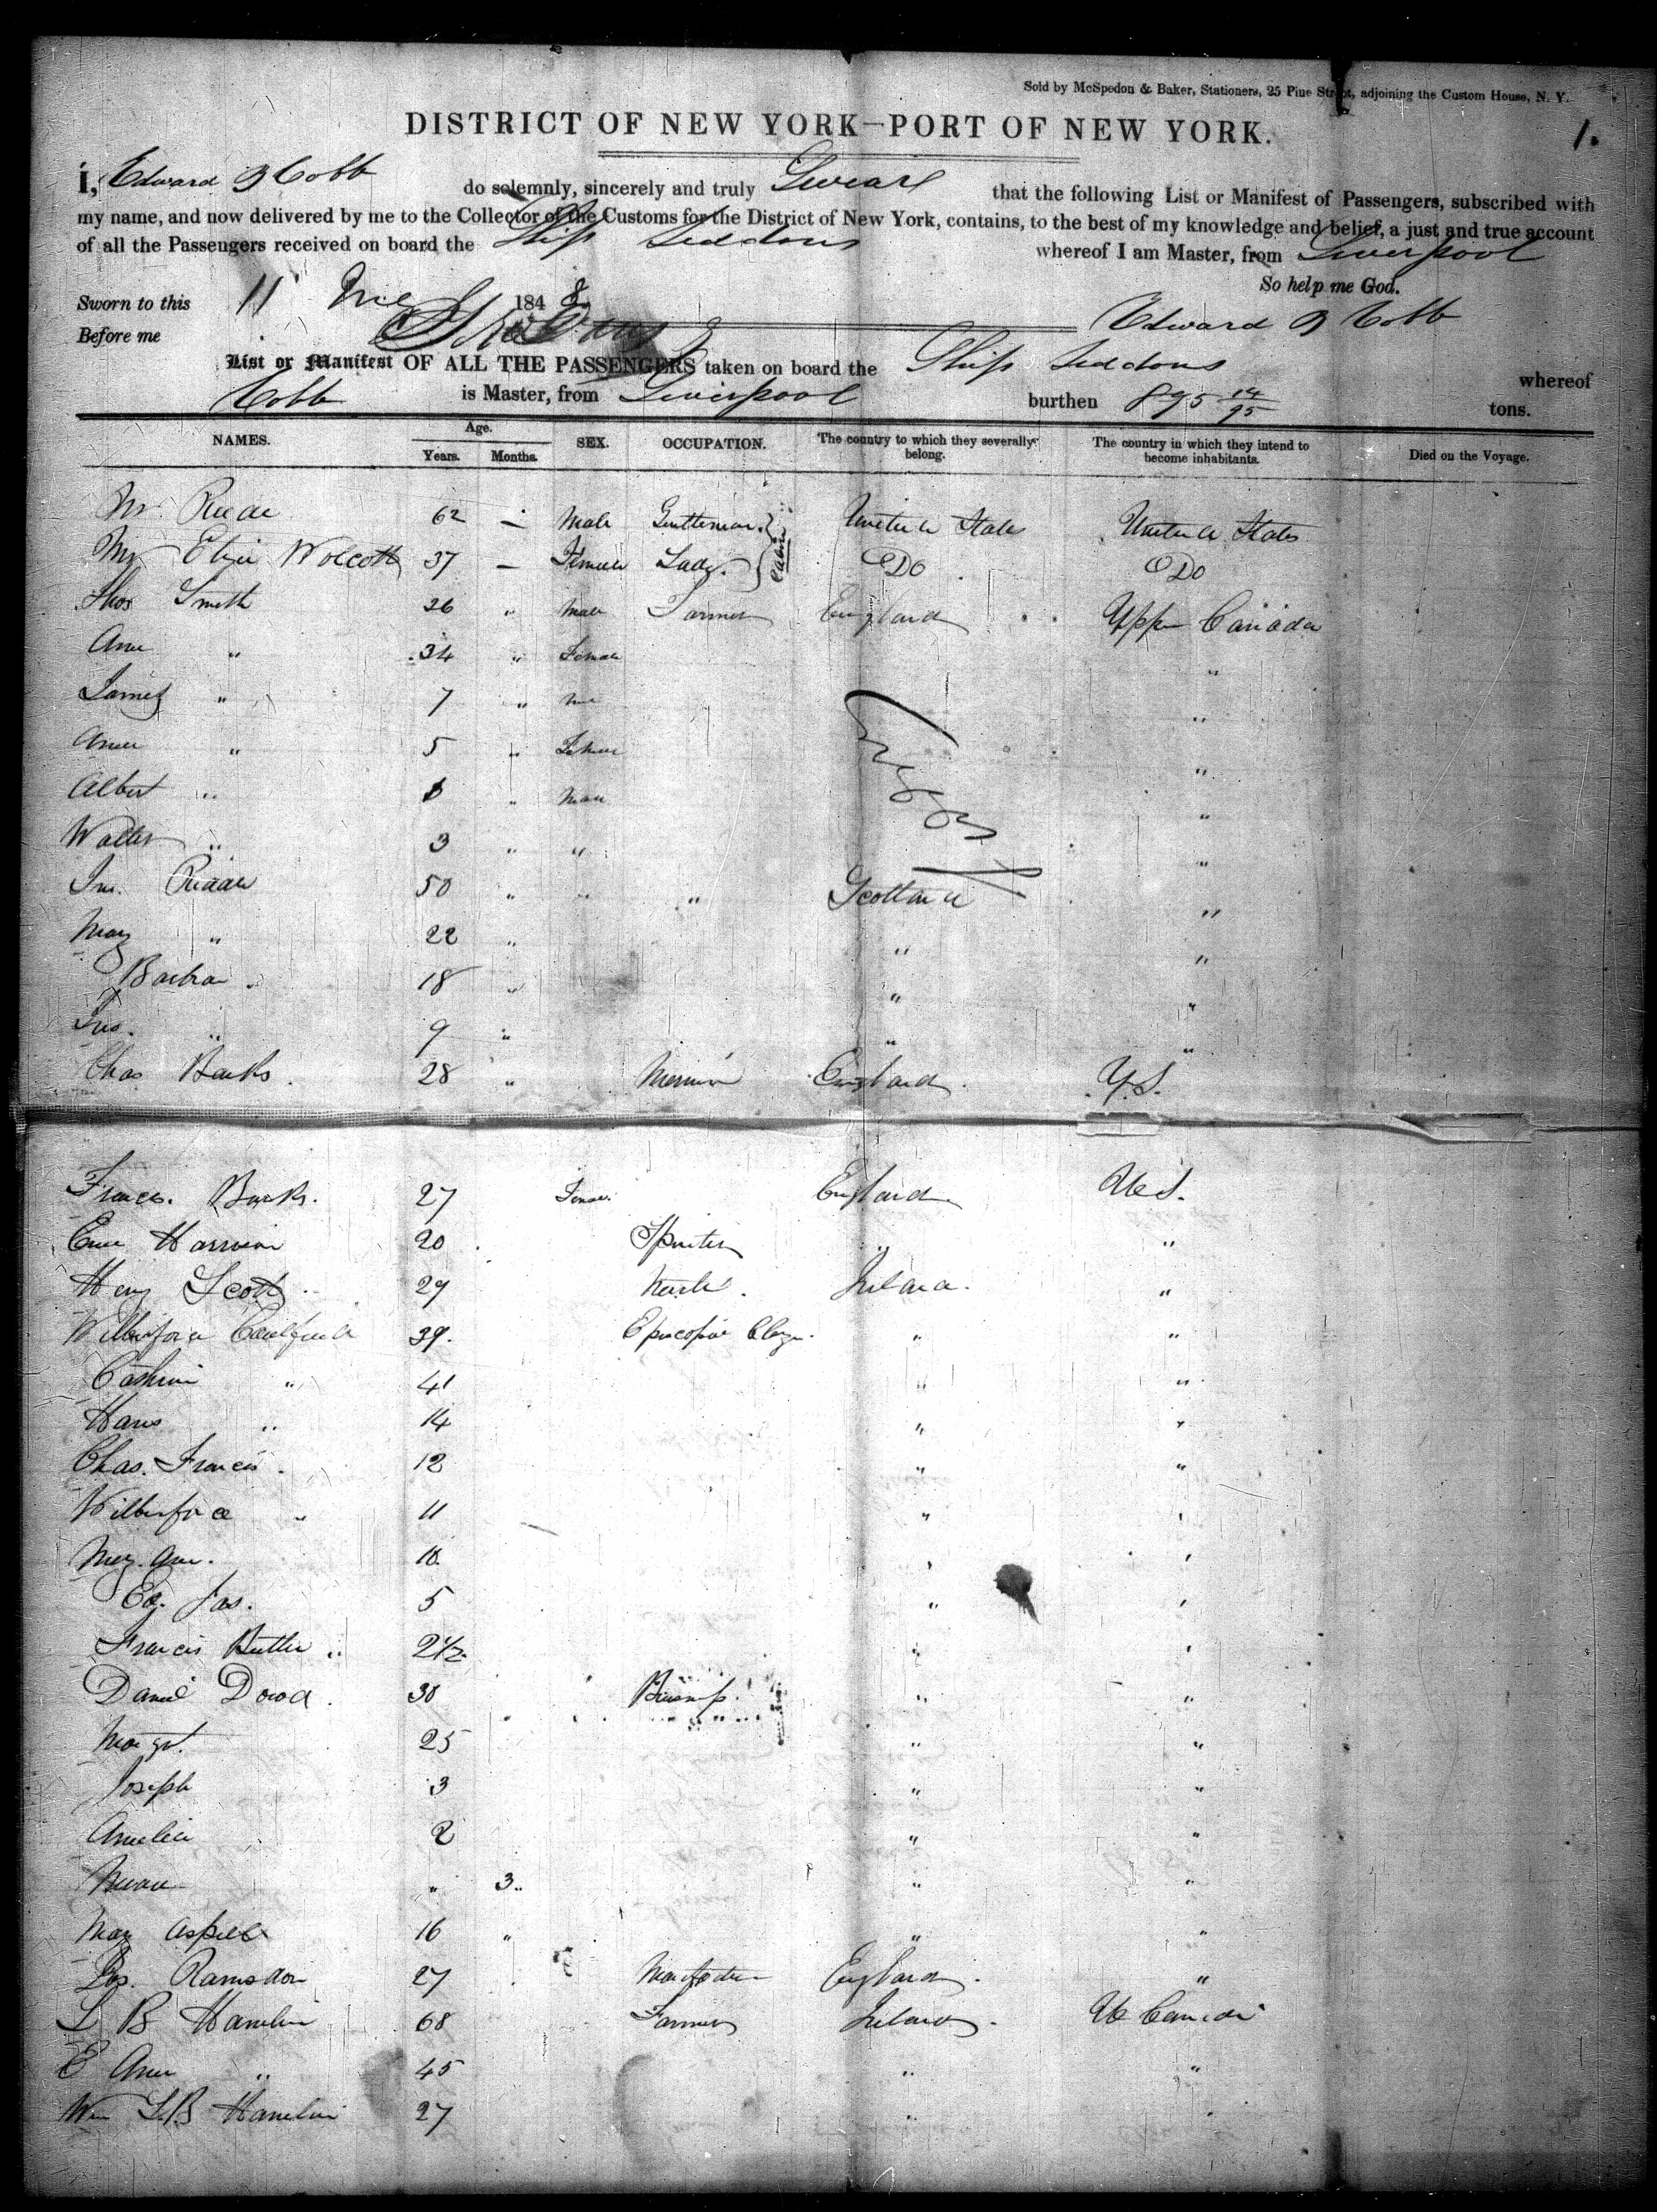 Sold by McSpedon & Baker, Stationers, 25 Pine Street, adjoining the Custom House, N. Y.
1.
DISTRICT OF NEW YORK—PORT OF NEW YORK.
I, Edward B Cobb do solemnly, sincerely and truly Swear that the following List or Manifest of Passengers, subscribed with
my name, and now delivered by me to the Collector of the Customs for the District of New York, contains, to the best of my knowledge and belief, a just and true account
of all the Passengers received on board the Ship Seddons whereof I am Master, from Liverpool
So help me God.
Sworn to this 11 1848
Before me Edward B Cobb
List or Manifest OF ALL THE PASSENGERS taken on board the Ship Seddons whereof
Cobb is Master, from Liverpool burthen 895 14/95 tons.
NAMES. Age. Years. Months. SEX. OCCUPATION. The country to which they severally belong. The country in which they intend to become inhabitants. Died on the Voyage.
Mr 62 — Male Gentleman Cabin United States United States
Mrs Eliza Wolcott 37 — Female Lady Do Do
Thos Smith 26 " Male Farmer England Upper Canada
Ann " 34 " Female "
James " 7 " "
" 5 " Female "
Albert " " Male "
Walter " 3 " " "
50 " " " Scotland "
Mary " 22 " " "
Barbra " 18 " " "
Jno. " 9 " " "
Chas Banks 28 " England U.S.
Frances Banks 27 Female England U S.
20 Spinster " "
Henry Scott 29 Ireland "
Wilberforce Caulfield 39. Episcopal " "
" 41 " "
Hans " 14 " "
Chas. Francis " 12 " "
Wilberforce " 11 " "
Mary Ann. 10 " "
Ed. Jas. 5 " "
Francis Butler " 2 1/2 " "
Daniel Dowd 30 " "
Margt. 25 " "
Joseph 3 " "
Amelia 2 " "
" 3 " "
Mary 16 " " "
Jos. Ramsdon 27 England "
L B Hamelin 68 Farmer Ireland U Canada
E Ann " 45 " "
Wm L.B Hamelin 27 " "